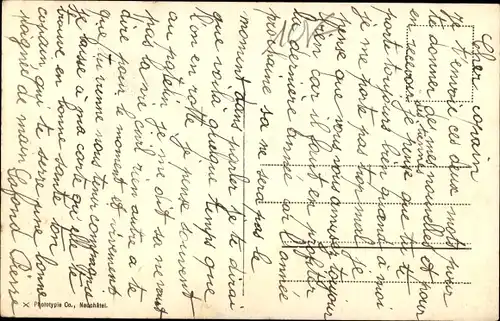 Cher copain
Je t'envoie ces deux mots pour
te donner de mes nouvelles et pour
en recevoir des tiennes je pense que tu te
porte toujours bien quand à moi
je me porte pas trop mal je
pense que vous vous amusez toujour
bien car il faut en profiter
la dernière année car l'année
prochaine sa ne sera pas le
moment dans parler je te dirai
que voilà quelque temps que
l'on en rotte je pense souvent
au patelin je me dit se ne vaut
pas la vie civil rien autre à te
dire pour le moment et vivement
que tu vienne nous tenir compagnie
Je laisse à ma carte qu'elle te
trouve en bonne santé ton
copain qui te serre une bonne
poignée de main Lafond Pierre
X Phototypie Co., Neuchâtel.